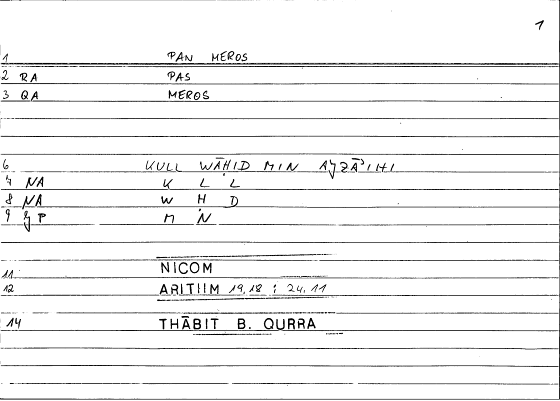 1
1 PAN MEROS
2 RA PAS
3 QA MEROS
6 KULL WĀHID MIN AǦZĀʾIHI
4 NA K L L
8 NA W Ḥ D
9 ǦP M N
11 NICOM
12 ARITIIM 19,18 : 24,11
14 THĀBIT B. QURRA